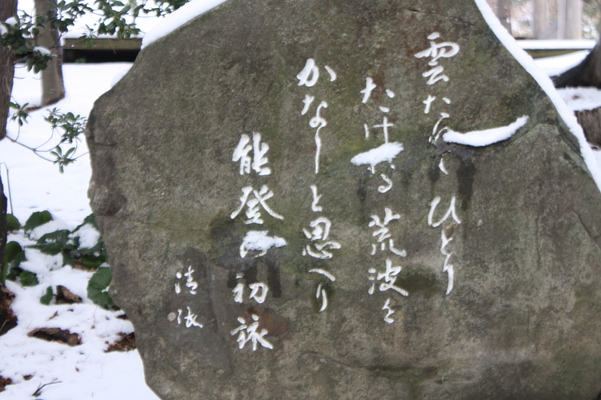 雲たれてひとり
たけれる荒波を
かなしと思へり
能登の初旅
清張